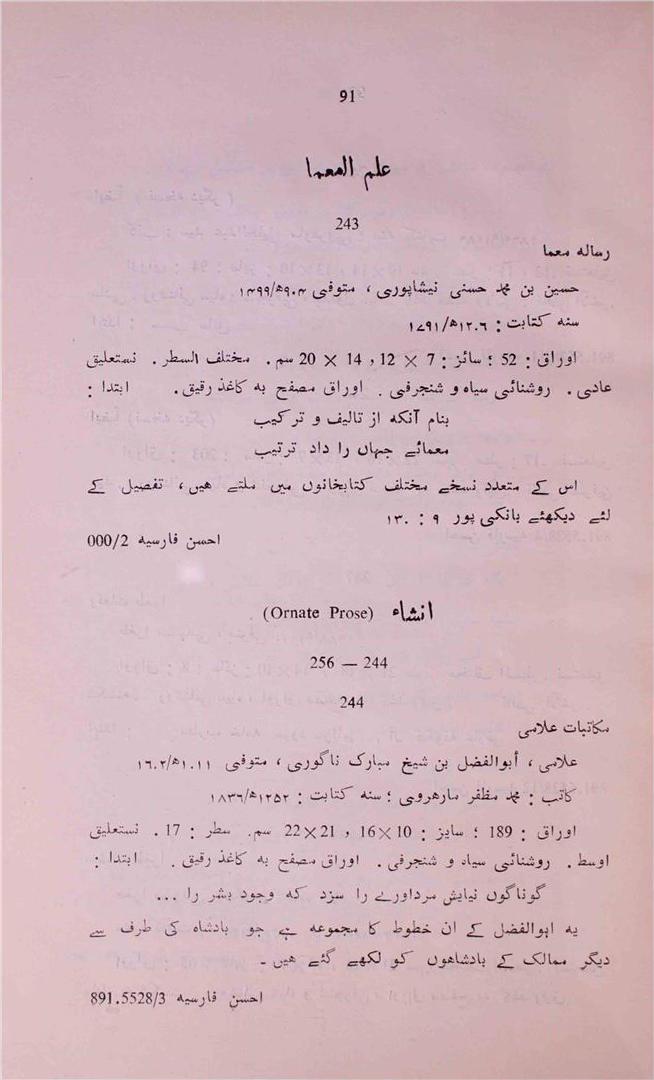 91
علم المعما
243
رساله معما
حسین بن محمد حسنی نیشاپوری ، متوفی ۹۰۴ھ/۱۴۹۹
سنه کتابت : ۱۲۰۶ھ/۱۷۹۱
اوراق : 52 ؛ سائز : 7 × 12 ، 14 × 20 سم . مختلف السطر . نستعلیق
عادی . روشنائی سیاه و شنجرفی . اوراق مصفح به کاغذ رقیق . ابتدا :
بنام آنکه از تالیف و ترکیب
معمائے جهاں را داد ترتیب
اس کے متعدد نسخے مختلف کتابخانوں میں ملتے هیں ، تفصیل کے
لئے دیکھئے بانکی پور ۹ : ۱۳۰ .
احسن فارسیه 000/2
انشاء (Ornate Prose)
256 — 244
244
مکاتبات علامی
علامی ، أبوالفضل بن شیخ مبارک ناگوری ، متوفی ۱۰۱۱ھ/۱۶۰۲
کاتب : محمد مظفر مارهروی ؛ سنه کتابت : ۱۲۵۲ھ/۱۸۳۶
اوراق : 189 ؛ سایز : 10×16 ، 21×22 سم . سطر : 17 . نستعلیق
اوسط . روشنائی سیاه و شنجرفی . اوراق مصفح به کاغذ رقیق . ابتدا :
گوناگوں نیایش مرداورے را سزد که وجود بشر را ...
یه ابوالفضل کے ان خطوط کا مجموعه ہے جو بادشاه کی طرف سے
دیگر ممالک کے بادشاهوں کو لکھے گئے هیں ۔
احسن فارسیه 891.5528/3